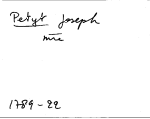 Petyt Joseph
mre
1789-22